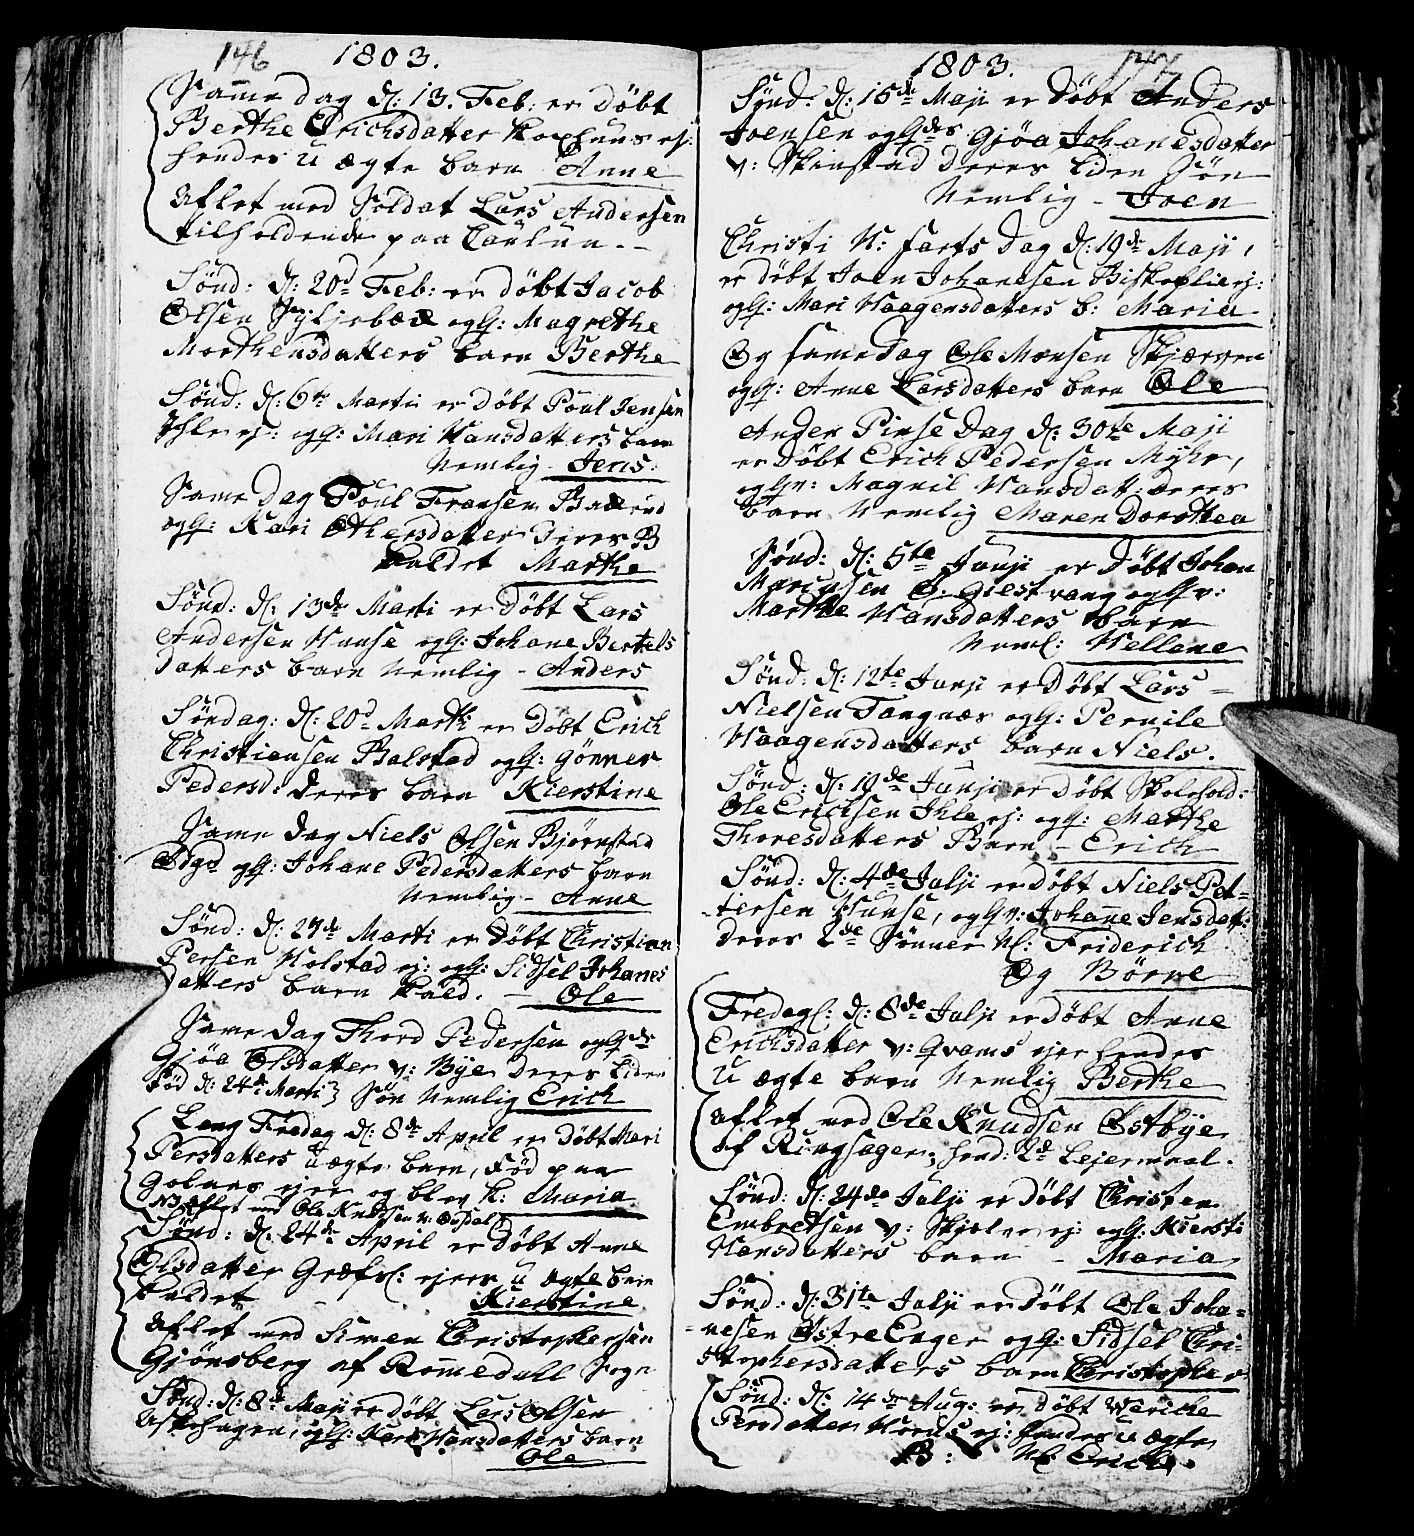 146 1803.
Samme dag d: 13. Feb: er døbt
Berthe Erichsdatter ej:
hendes U ægte barn Anne
Aflet med Soldat Lars Andersen
tilholdende paa
Sønd: d: 20d Feb: er døbt Jacob
Olsen oghs: Magrethe
Morthensdatters barn Berthe
Sønd: d: 6te Marti er døbt Poul Jensen
Ihle ej: oghs: Mari Hansdatters barn
Nemlig - Jens.
Same Dag Poul Fransen
oghs: Kari Othersdatter deres B
kaldet Marthe
Sønd: d: 13de Marti er døbt Lars
Andersen Hunse oghs: Johane Bertels
datters barn Nemlig - Anders
Søndag: d: 20d Marti er Døbt Erich
Christiansen Balstad oghs: Gønner
Pedersd: deres barn Kierstine
Same dag Niels Olsen Bjørnstad
Ødgd oghs: Johane Pedersdatters barn
Nemlig - Anne
Sønd: d: 27de Marti er døbt Christian
Persen Holstad ej: oghs: Sidsel Johanes
datters barn kald. - Ole
Same dag Thord Pedersen oghds
Gjøa Olsdatter v: Bye deres liden
fød d: 24de Marti} Søn Nemlig Erich
Lang Fredag d: 8de April er døbt Mari
Persdatters uægte barn, fød paa
ejer og blev k: Maria
NB Aflet med Ole Knudsen v:
Sønd: d: 24de April er døbt Anne
Olsdatter Græfs: ejers u ægte barn
kaldet Kierstine
Aflet med Simen Christophersen
Gjønsberg af Romedall Sogn
Sønd: d: 8de Maji er døbt Lars Olsen
Askehagen, oghs: Kari Hansdatters barn
Ole
1803. 147
Sønd: d: 15de Maji er Døbt Anders
Joensen oghdes Gjøa Johanesdatter
v: Skinstad deres liden Søn
Nemlig - Joen
Christi H: farts Dag d: 19de Maji,
er døbt Joen Johanesen Biskoplie ej:
oghs: Mari Haagensdatters b: Maria
Og same dag Ole Monsen Skjærven
oghs: Anne Larsdatters barn Ole
Anden Pinse Dag d: 30te Maji
er Døbt Erich Pedersen Myhr,
oghv: Magnil Hansdatt: deres
barn Nemlig Maren Dorothea
Sønd: d: 5te Junji er Døbt Johan
Mariusen Ø: Giestvang oghv:
Marthe Hansdatters barn
Neml: Hellene
Sønd: d: 12te Junji er Døbt Lars
Nielsen Tangnæs oghs: Pernile
Haagensdatters barn Niels.
Sønd: d: 19de Junji er døbt Skolehold:
Ole Erichsen Ihle ej: oghs: Marthe
Thoresdatters Barn - Erich
Sønd: d: 4de Julji er døbt Niels Pet-
tersen Hunse, oghv: Johanne Jensdatt:
deres 2de Sønner N: Friderich
Og Børre
Fredag: d: 8de Julji er døbt Anne
Erichsdatter v: Qvams ejer hendes
U ægte barn Nemlig Berthe
aflet med Ole Knudsen Østbye
af Ringsager; hend: 2de Lejermaal.
Sønd: d: 24de Julji er døbt Christen
Embretsen v: ej oghs: Kiersti
Hansdatters barn - Maria
Sønd: d: 31te Julji er Døbt Ole Joha-
nesen Østre Enger oghs: Sidsel Chri-
stophersdatters barn Christopher
Sønd: d: 14de Aug: er døbt Mariche
Persdatter ej: hendes u ægte
B: N: Erich.